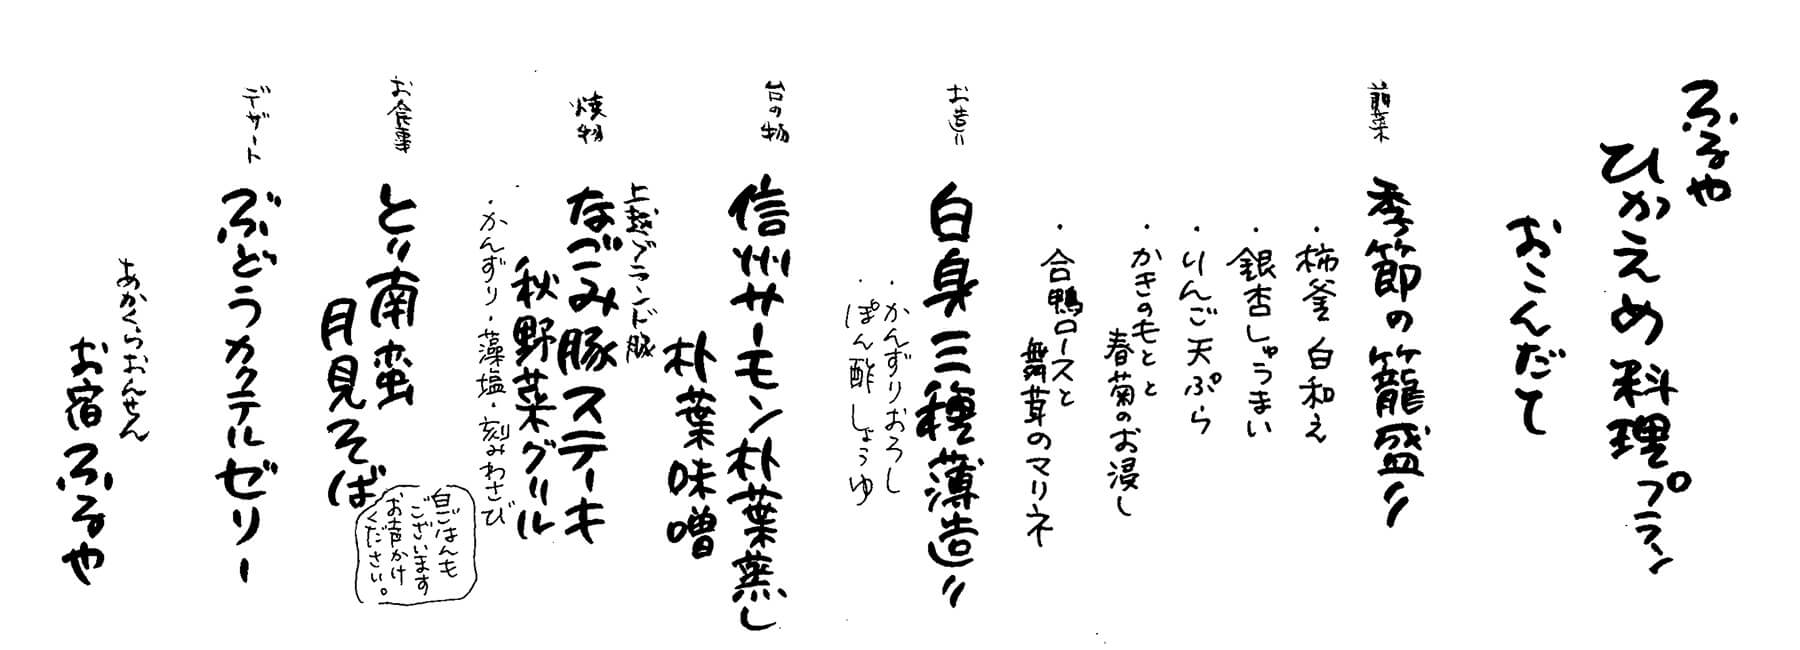 ふるや
ひかえめ料理プラン
おこんだて
前菜
季節の籠盛り
・柿釜 白和え
・銀杏しゅうまい
・りんご天ぷら
・かきのもとと
春菊のお浸し
・合鴨ロースと
舞茸のマリネ
お造り
白身三種薄造り
・かんずりおろし
・ぽん酢しょうゆ
台の物
信州サーモン朴葉蒸し
朴葉味噌
焼物
上越ブランド豚
なごみ豚ステーキ
秋野菜グリル
・かんずり・藻塩・刻みわさび
お食事
とり南蛮
月見そば
白ごはんも
ございます
お声かけ
ください。
デザート
ぶどうカクテルゼリー
あかくらおんせん
お宿ふるや